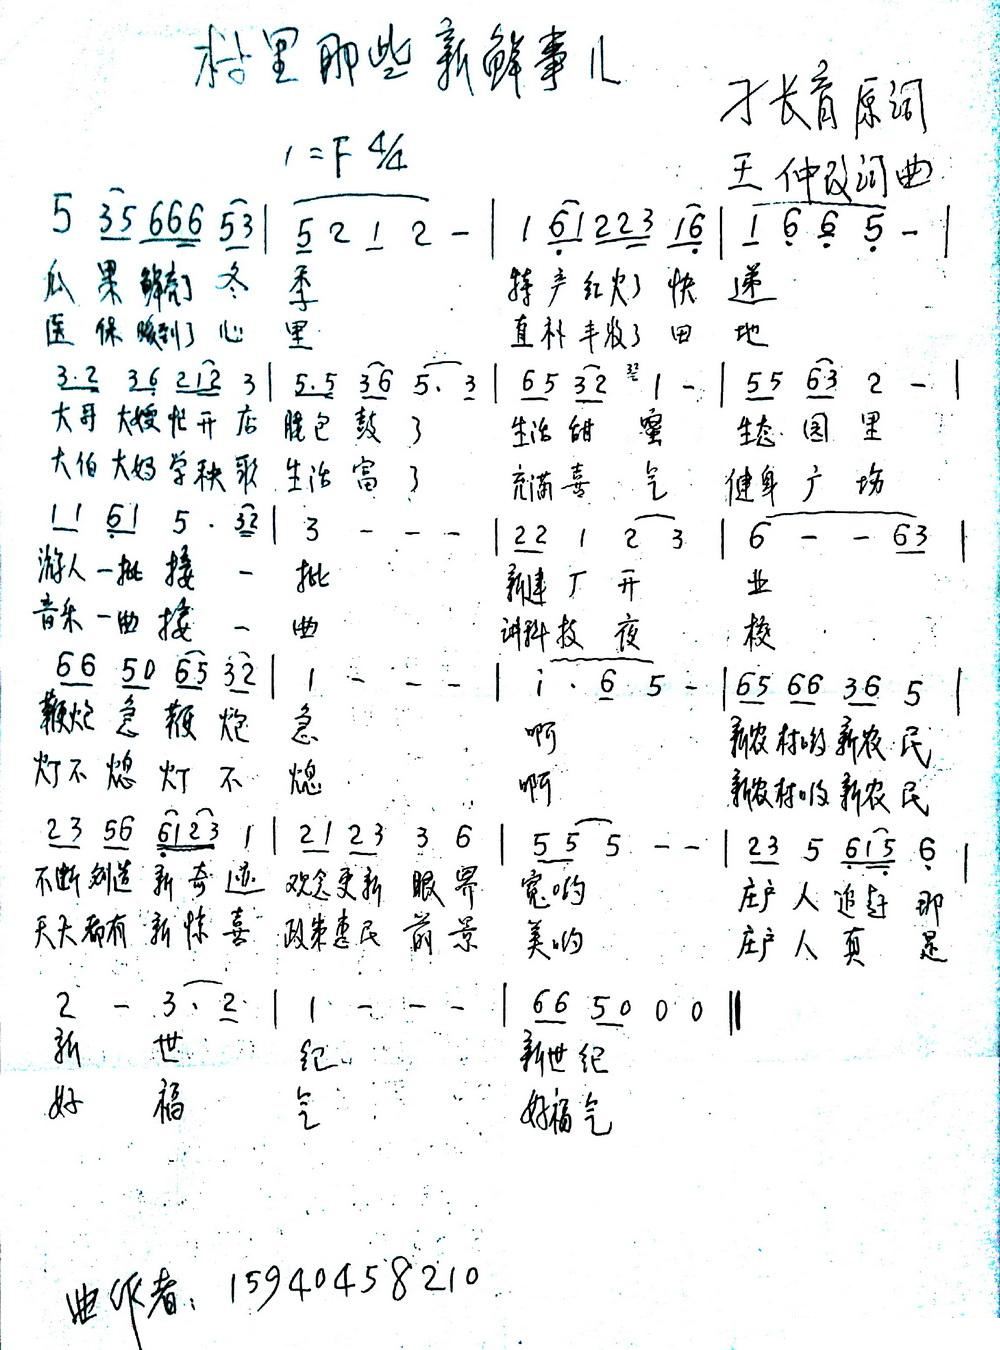 村里那些新鲜事儿
才长育原词
1=F 4/4
王仲改词曲
5 35 666 53 | 5 2 1 2 - | 1 61 223 16 | 1 6 6 5 - |
瓜果鲜亮了冬季 特产红火了快递
医保暖到了心里 直补丰收了田地
3.2 36 212 3 | 5.5 36 5. 3 | 65 32 1 - | 55 63 2 - |
大哥大嫂忙开店 腰包鼓了 生活甜蜜 生态园里
大伯大妈学秧歌 生活富了 充满喜气 健身广场
11 61 5 . 32 | 3 - - - | 22 1 2 3 | 6 - - 63 |
游人一批接一批 新建厂开业
音乐一曲接一曲 讲科技夜校
66 50 65 32 | 1 - - - | i . 6 5 - | 65 66 36 5 |
鞭炮急鞭炮急 啊 新农村哟新农民
灯不熄灯不熄 啊 新农村哟新农民
23 56 6123 1 | 21 23 3 6 | 55 5 - - | 23 5 615 6 |
不断创造新奇迹 观念更新眼界宽哟 庄户人追赶那
天天都有新惊喜 政策惠民前景美哟 庄户人真是
2 - 3. 2 | 1 - - - | 66 50 0 0 ‖
新世纪 新世纪
好福气 好福气
曲作者：15940458210